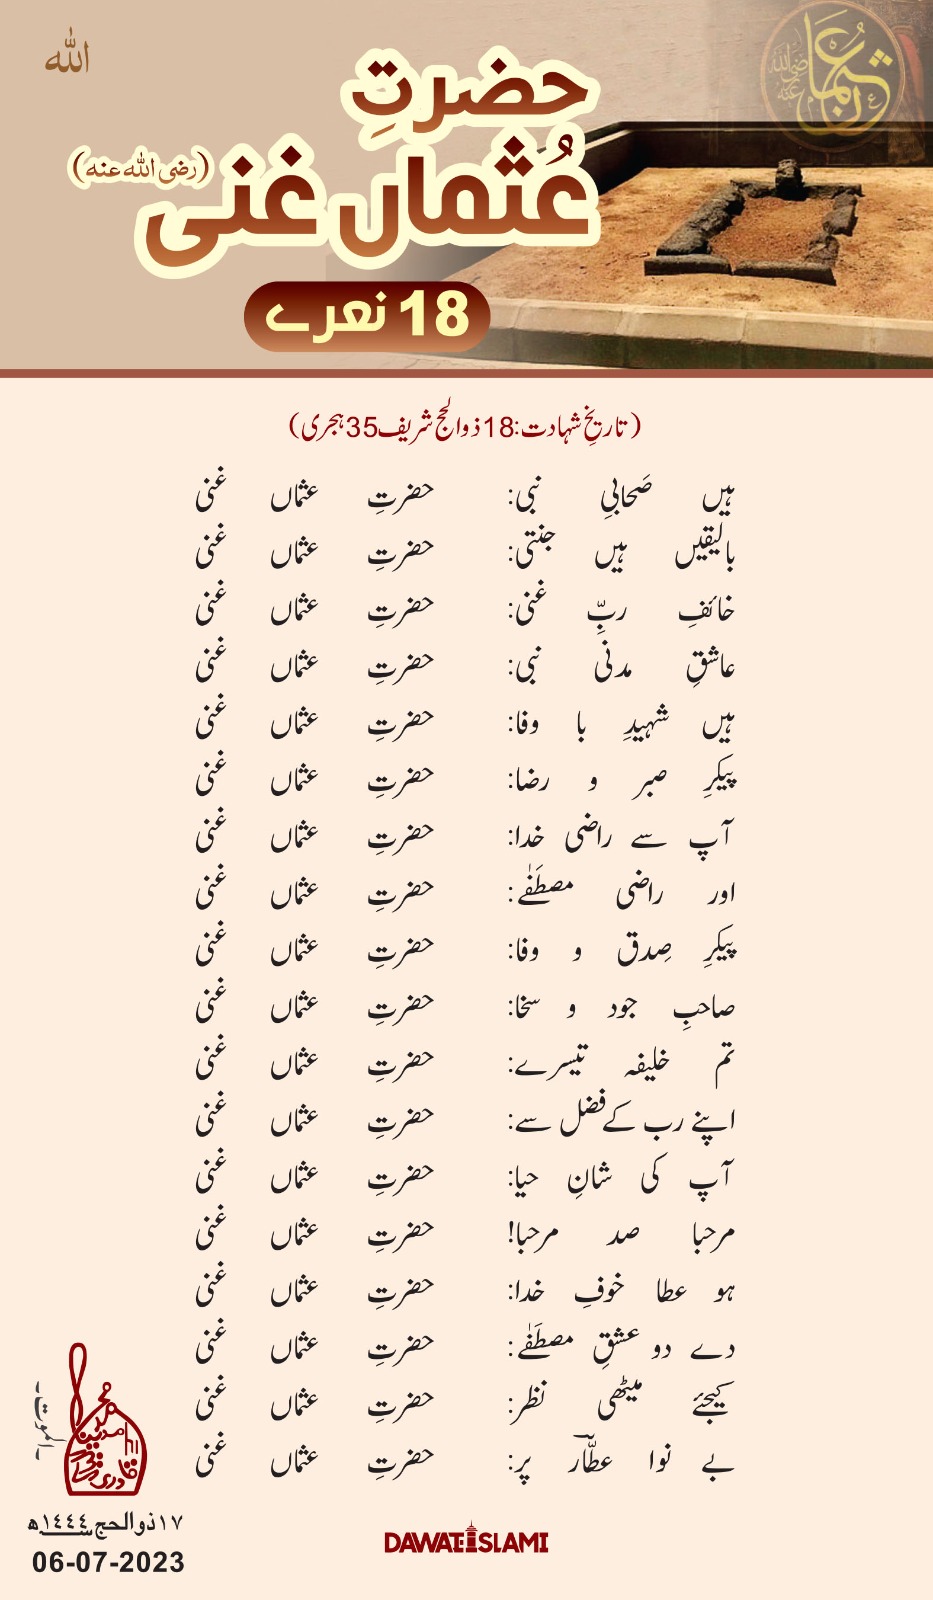 الله
عثمان رضی اللہ عنہ
حضرتِ
عُثماں غنی (رضی اللہ عنہ)
18 نعرے
(تاریخِ شہادت:18ذوالحج شریف35ہجری)
ہیں صَحابیِ نبی: حضرتِ عثماں غنی
بالیقیں ہیں جنتی: حضرتِ عثماں غنی
خائفِ ربِّ غنی: حضرتِ عثماں غنی
عاشقِ مدنی نبی: حضرتِ عثماں غنی
ہیں شہیدِ با وفا: حضرتِ عثماں غنی
پیکرِ صبر و رضا: حضرتِ عثماں غنی
آپ سے راضی خدا: حضرتِ عثماں غنی
اور راضی مصطَفٰے: حضرتِ عثماں غنی
پیکرِ صِدق و وفا: حضرتِ عثماں غنی
صاحبِ جود و سخا: حضرتِ عثماں غنی
تم خلیفہ تیسرے: حضرتِ عثماں غنی
اپنے رب کے فضل سے: حضرتِ عثماں غنی
آپ کی شانِ حیا: حضرتِ عثماں غنی
مرحبا صد مرحبا! حضرتِ عثماں غنی
ہو عطا خوفِ خدا: حضرتِ عثماں غنی
دے دو عشقِ مصطَفٰے: حضرتِ عثماں غنی
کیجئے میٹھی نظر: حضرتِ عثماں غنی
بے نوا عطّاؔر پر: حضرتِ عثماں غنی
الموت
١٧ذوالحج١٤٤٤ھ
06-07-2023
DAWATEISLAMI